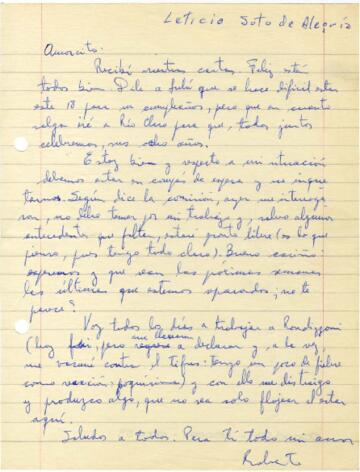 Leticia Soto de Alegría
Amorcito:
Recibí vuestras cartas. Feliz están
todos bien. Dile a Julú que se hace difícil estar
este 18 para su cumpleaños, pero que en cuanto
salga iré a Río Claro para que, todos juntos
celebremos, sus ocho años.
Estoy bien y respecto a mi situación
debemos estar en compás de espera y no inquie
tarnos. Según dice la comisión, ayer me interroga
ron, no debo temer por mi trabajo y, salvo algunos
antecedentes que faltan, estaré pronto libre (es lo que
pienso, pues tengo todo claro). Bueno cariño
esperemos y que sean las próximas semanas
las últimas que estemos separados; no te
parece?
Voy todos los días a trabajar a Rondizzoni
(hoy fui, pero me llevaron a declarar y, a la vez,
me vacuné contra el tifus: tengo un poco de fiebre
como reacción: poquísima) y con ello me distraigo
y produzco algo, que no sea solo flojear el estar
aquí.
Saludos a todos. Para ti todo mi amor
Roberto